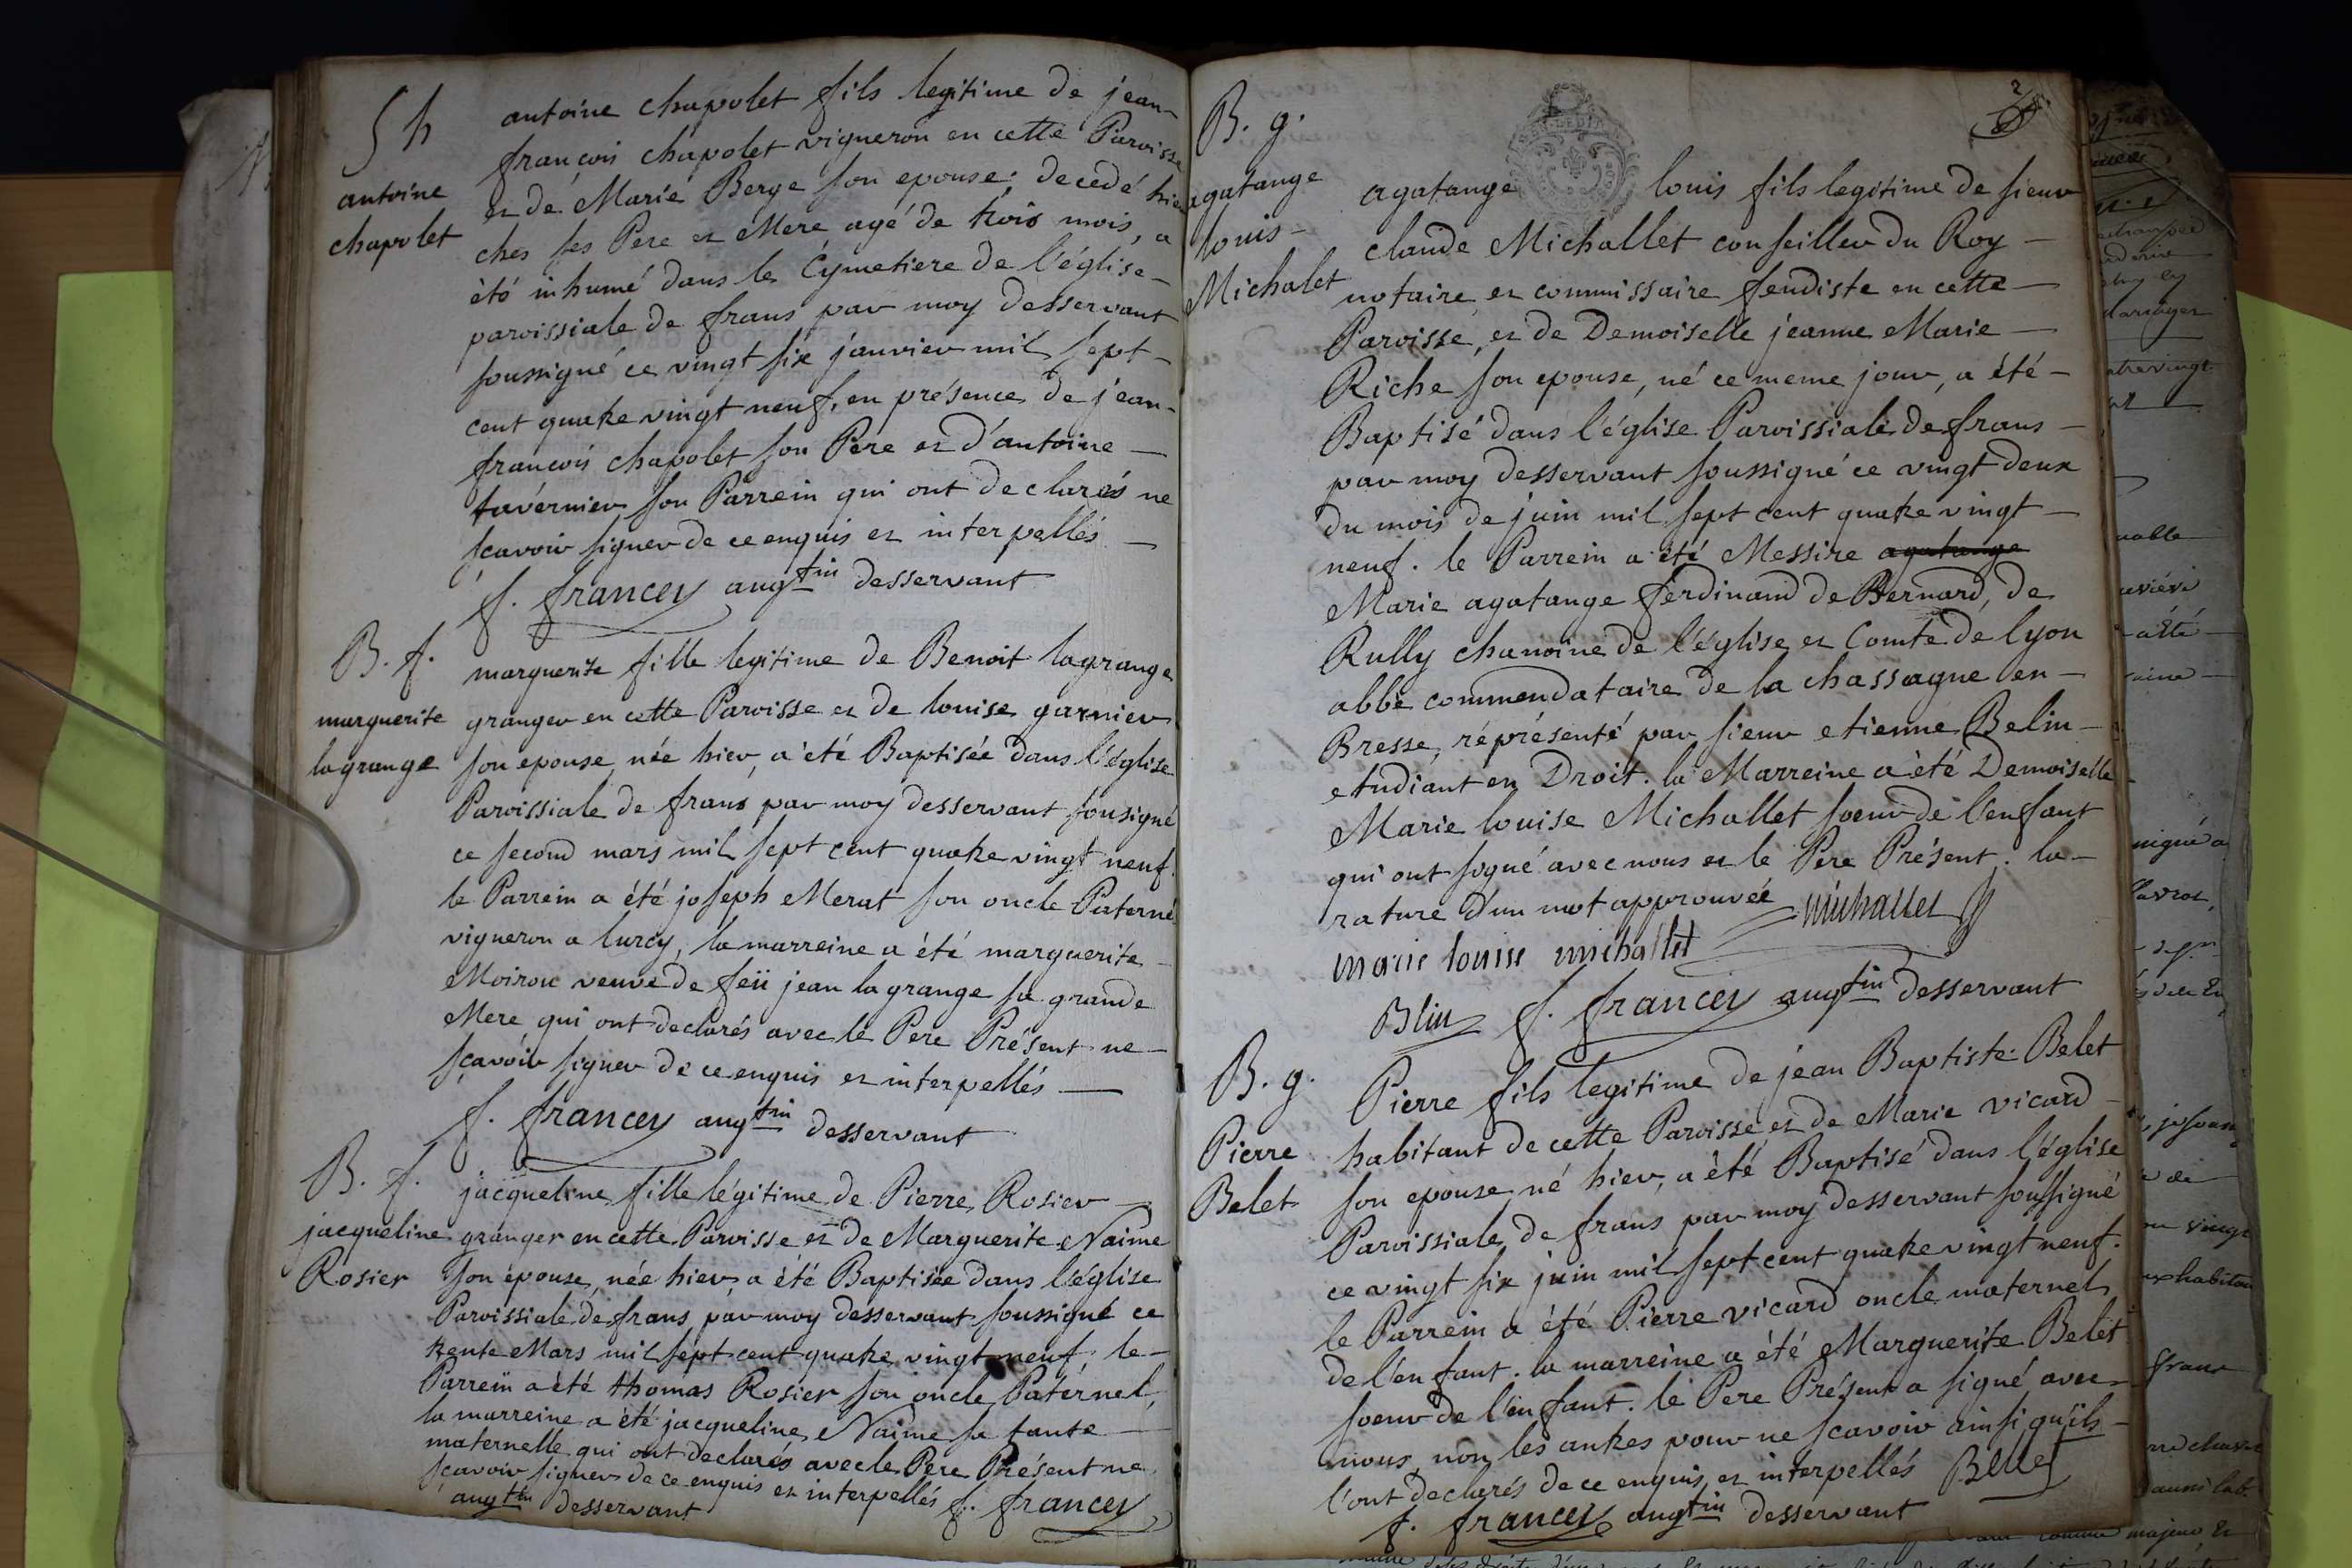 Sh
antoine
chapolet
antoine chapolet fils legitime de jean-
françois chapolet vigneron en cette Paroisse
et de Marie Berge son epouse, decedé hier
ches ses Pere et Mere agé de trois mois, a
èté inhumé dans le Cymetiere de l'église-
paroissiale de frans par moy desservant
soussigné ce vingt six janvier mil sept-
cent quatre vingt neuf, en présence de jean-
françois chapolet son Père et d'antoine
tavérnier son Parrein qui ont declarés ne
scavoir signer de ce enquis et interpellés
f. francey augtin desservant
B. f.
marguerite
lagrange
marguerite fille legitime de Benoit lagrange
granger en cette Paroisse et de louise garnier
son epouse née hier, a été Baptisée dans l'église
Paroissiale de frans par moy desservant sousigné
ce second mars mil sept cent quatre vingt neuf
le Parrein a été joseph Merat son oncle Paternel
vigneron a lurcy, la marreine a été marguerite
Moiroux veuve de feü jean lagrange sa grande
Mere qui ont declarés avec le Pere Présent ne-
sçavoir signer de ce enquis et interpellés
f. francey augtin desservant
B. f.
jacqueline
Rosier
jacqueline fille légitime de Pierre Rosier
granger en cette Paroisse et de Marguerite Naime
son épouse, née hier a été Baptisée dans l'église
Paroissiale de frans par moy desservant soussigné ce
trente Mars mil sept cent quatre vingt neuf, le-
Parrein a été thomas Rosier son oncle Paternel,
la marreine a été jacqueline Naime sa tante
maternelle qui ont declarés avec le Pere Présent ne
sçavoir signer de ce enquis et interpellés f. francey
augtin desservant
2
B. g.
agatange
louis-
Michalet
agatange louis fils legitime de sieur
claude Michallet conseiller du Roy-
notaire et commissaire feudiste en cette-
Paroisse, et de Demoiselle jeanne Marie-
Riche son epouse, né ce meme jour, a été-
Baptisé dans l'église Paroissiale de frans-
par moy desservant soussigné ce vingt deux
du mois de juin mil sept cent quatre vingt-
neuf. le Parrein a été Messire agatange
Marie agatange ferdinand de Bernard, de
Rully chanoine de l'église et Comte de lyon
abbé commendataire de la chassagne en-
Bresse, réprésenté par sieur etienne Belin-
etudiant en Droit. la Marreine a été Demoiselle
Marie louise Michallet soeur de l'enfant
qui ont signé avec nous et le Pere Présent. la-
rature d'un mot approuvée Michallet
marie louise michallet
Blin f. francey augtin desservant
B. g.
Pierre
Belet
Pierre fils legitime de jean Baptiste Belet
habitant de cette Paroisse et de Marie vicard-
son epouse né hier, a été Baptisé dans l'église
Paroissiale de frans par moy desservant soussigné
ce vingt six juin mil sept cent quatre vingt neuf.
le Parrein a été Pierre vicard oncle maternel
de l'enfant. la marreine a été Marguerite Belet
soeur de l'enfant. le Pere Présent a signé avec-
nous, non les autres pour ne scavoir ainsi qu'ils-
l'ont declarés de ce enquis et interpellés Bellet
f. francey augtin desservant